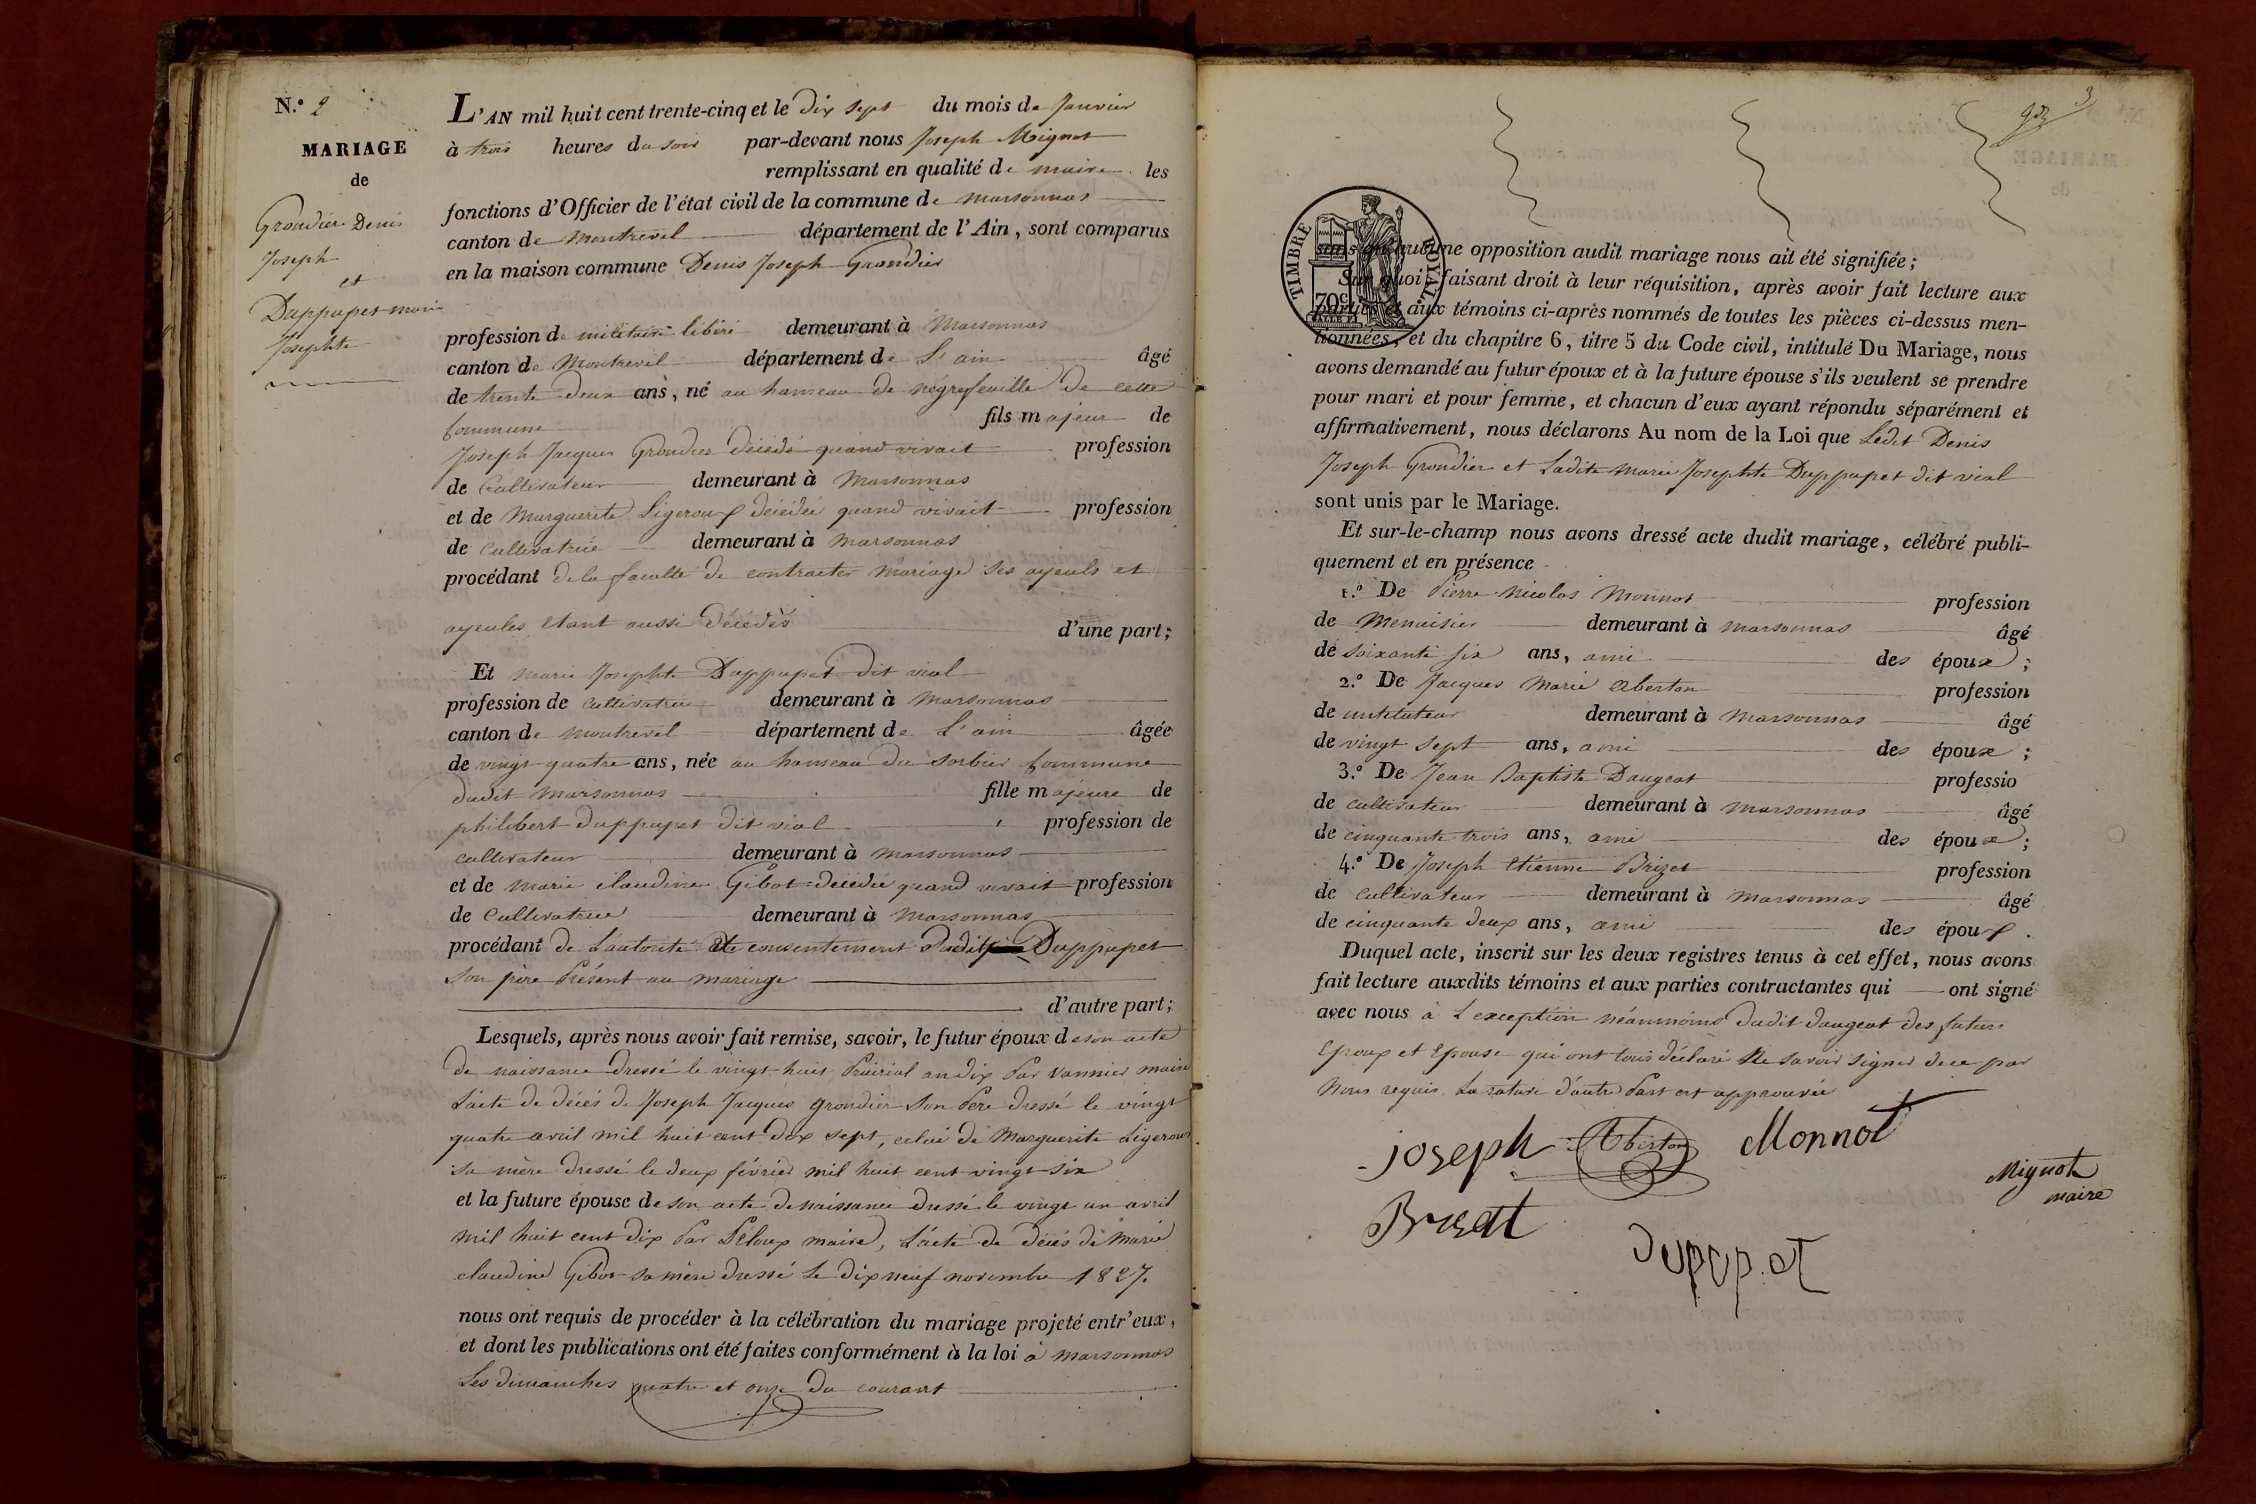 N.º 2
MARIAGE
de
Grondier Denis
Joseph
et
Duppupet marie
Josephte
L'AN mil huit cent trente-cinq et le dix sept du mois de Janvier
à trois heures du soir par-devant nous Joseph Mignot
remplissant en qualité de maire les
fonctions d'Officier de l'état civil de la commune de marsonnas
canton de montrevel département de l'Ain, sont comparus
en la maison commune Denis Joseph Grondier
profession de militaire libéré demeurant à Marsonnas
canton de Montrevel département de L'ain âgé
de trente deux ans, né au hameau de négrefeuille de cette
commune fils majeur de
Joseph Jacques Grondier décédé quand vivait profession
de Cultivateur demeurant à Marsonnas
et de Marguerite Ligeroux décédée quand vivait profession
de cultivatrice demeurant à Marsonnas
procédant de la faculté de contracter mariage ses ayeuls et
ayeules étant aussi décédés d'une part;
Et marie Josephte Duppupet dit vial
profession de cultivatrice demeurant à Marsonnas
canton de montrevel département de L'ain âgée
de vingt quatre ans, née au hameau du sorbier commune
dudit Marsonnas fille majeure de
philibert duppupet dit vial profession de
cultivateur demeurant à marsonnas
et de marie claudine Gibot décédée quand vivait profession
de Cultivatrice demeurant à Marsonnas
procédant de L'autorité et consentement dudit Duppupet
son père Présent au mariage
d'autre part;
Lesquels, après nous avoir fait remise, savoir, le futur époux de son acte
de naissance dressé le vingt huit Prairial an dix Par vannier maire
L'acte de décès de Joseph Jacques grondier Son Père dressé le vingt
quatre avril mil huit cent dix sept, celui de Marguerite Ligeroux
sa mère dressé le deux février mil huit cent vingt six
et la future épouse de son acte de naissance dressé le vingt un avril
mil huit cent dix Par Péloux maire, L'acte de décès de Marie
claudine Gibot sa mère dressé Le dix neuf novembre 1827.
nous ont requis de procéder à la célébration du mariage projeté entr'eux,
et dont les publications ont été faites conformément à la loi à marsonnas
Les dimanches quatre et onze du courant
3
TIMBRE ROYAL
70c
sans qu'aucune opposition audit mariage nous ait été signifiée;
Sur quoi, faisant droit à leur réquisition, après avoir fait lecture aux
parties et aux témoins ci-après nommés de toutes les pièces ci-dessus men-
tionnées, et du chapitre 6, titre 5 du Code civil, intitulé Du Mariage, nous
avons demandé au futur époux et à la future épouse s'ils veulent se prendre
pour mari et pour femme, et chacun d'eux ayant répondu séparément et
affirmativement, nous déclarons Au nom de la Loi que Ledit Denis
Joseph Grondier et Ladite marie Josephte Duppupet dit vial
sont unis par le Mariage.
Et sur-le-champ nous avons dressé acte dudit mariage, célébré publi-
quement et en présence
1.º De Pierre Nicolas Monnot profession
de Menuisier demeurant à marsonnas âgé
de soixante six ans, ami des époux;
2.º De Jacques Marie Aberton profession
de instituteur demeurant à Marsonnas âgé
de vingt sept ans, ami des époux;
3.º De Jean Baptiste Daugeat professio
de cultivateur demeurant à marsonnas âgé
de cinquante trois ans, ami des époux;
4.º De Joseph Etienne Brizet profession
de cultivateur demeurant à marsonnas âgé
de cinquante deux ans, ami des époux.
Duquel acte, inscrit sur les deux registres tenus à cet effet, nous avons
fait lecture auxdits témoins et aux parties contractantes qui ont signé
avec nous à L'exception néanmoins dudit daugeat des futurs
Epoux et Epouse qui ont tous déclaré Ne savoir signer de ce par
Nous requis. La rature d'autre Part est approuvée
joseph Aberton Monnot
Mignot
maire
Brizet
dupup.et